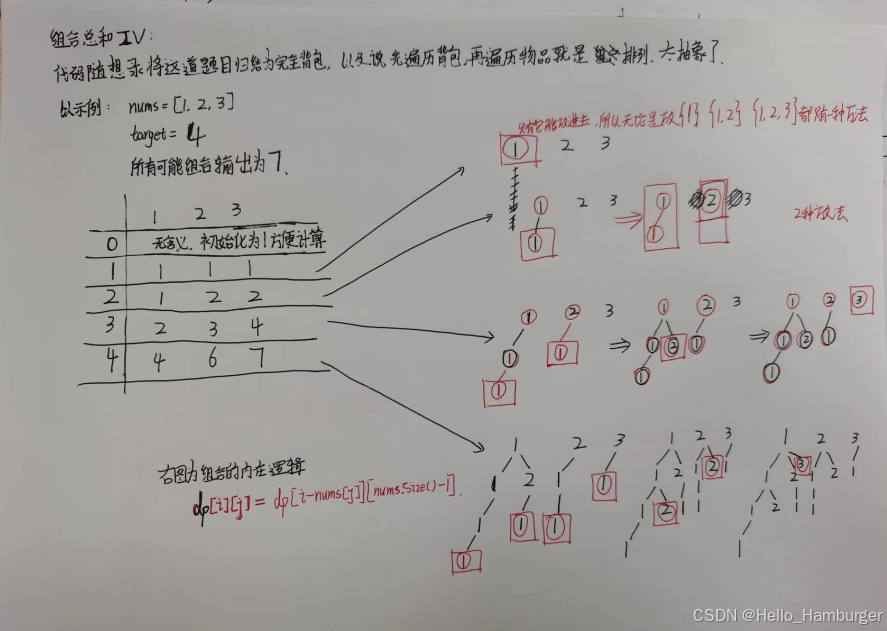 组合总和IV:
代码随想录将这道题目归结为完全背包, 以及说先遍历背包,再遍历物品就是排列. 太抽象了.
以示例: nums=[1,2,3]
target= 4
所有可能组合输出为7.
只有它能放进去,所以无论是放{1} {1,2} {1,2,3}都只有一种方法
① 2 3
① 2 3 ⇒ ① ② 3
①
①
2种放法
1 2 3
0 无含义. 初始化为1方便计算
1 1 1 1
2 1 2 2
3 2 3 4
4 4 6 7
① ② 3 ⇒ ① ② 3 ⇒ ① ② ③
① ① ① ② ① ① ② ①
① ① ①
1 2 3 1 2 3 1 2 3
右图为组合的内在逻辑
dp[i][j] = dp[i-nums[j]][nums.size()-1].
CSDN @Hello_Hamburger